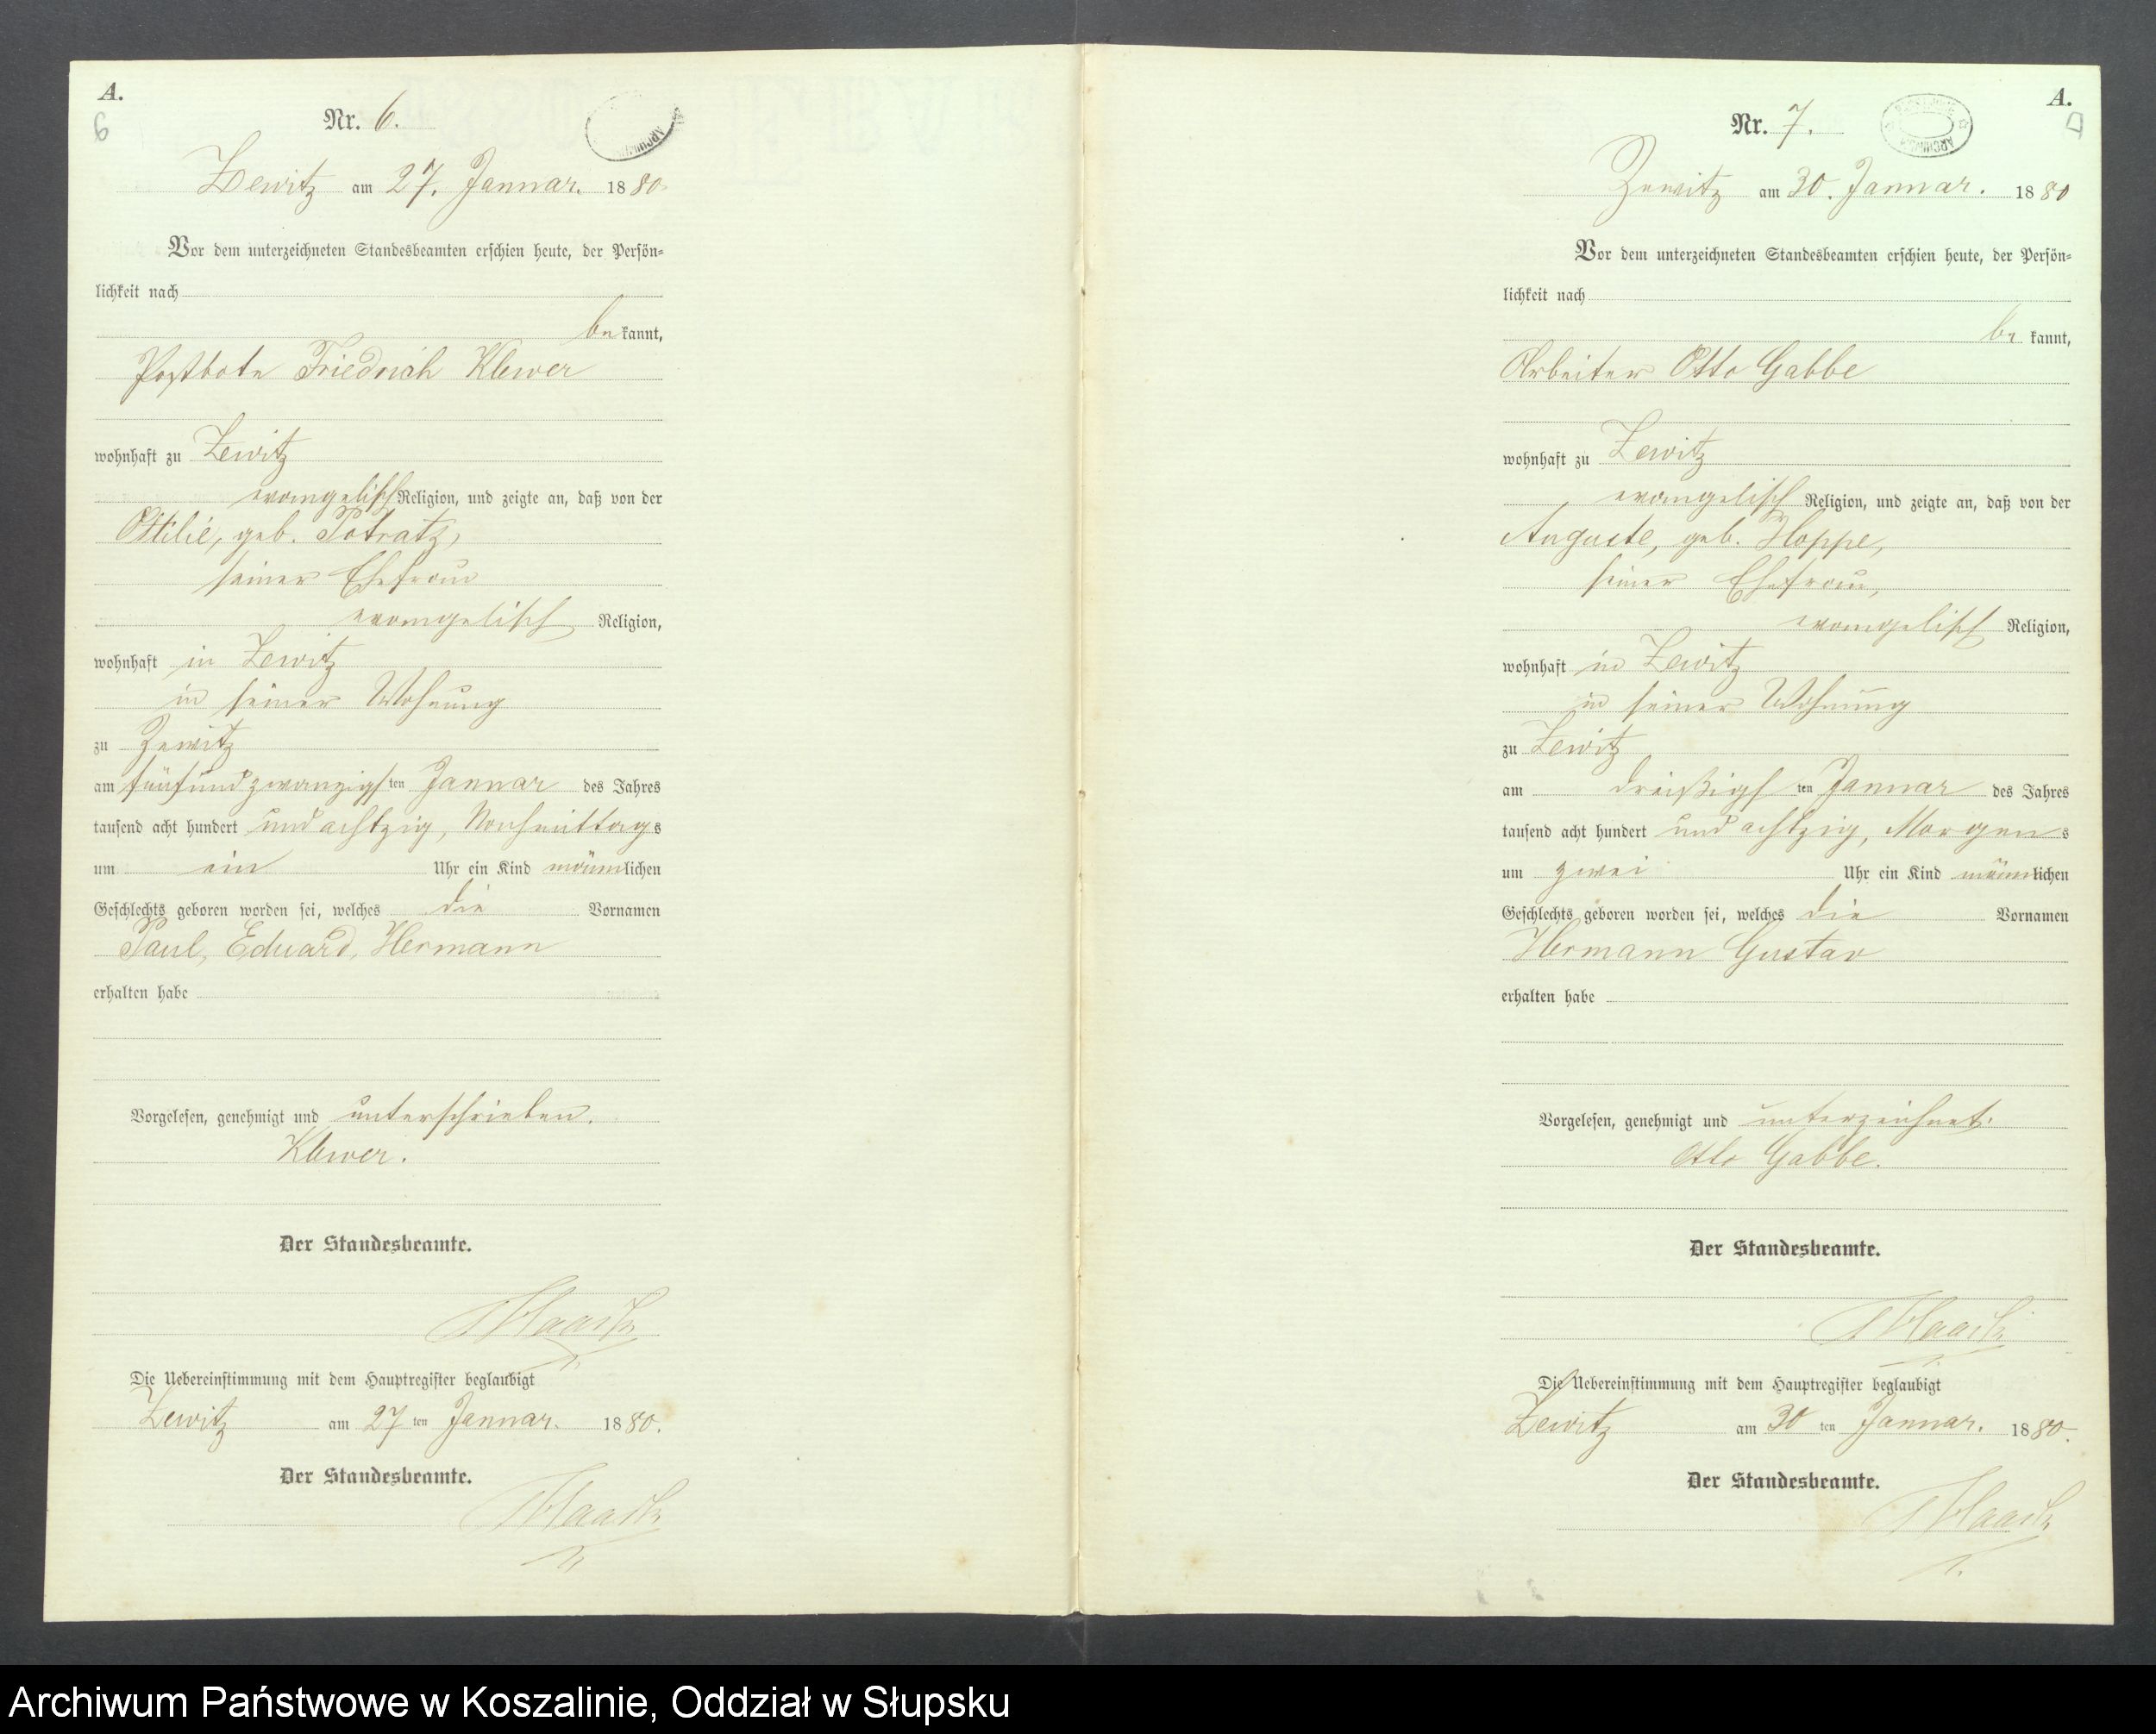 A.
6
Nr. 6.
Zewitz am 27. Januar. 1880
Vor dem unterzeichneten Standesbeamten erschien heute, der Persön-
lichkeit nach
be kannt,
Postbote Friedrich Klewer
wohnhaft zu Zewitz
evangelisch Religion, und zeigte an, daß von der
Ottilie, geb. Potratz,
seiner Ehefrau
evangelisch Religion,
wohnhaft in Zewitz
in seiner Wohnung
zu Zewitz
am fünfundzwanzigsten Januar des Jahres
tausend acht hundert und achtzig, Nachmittags
um ein Uhr ein Kind männlichen
Geschlechts geboren worden sei, welches die Vornamen
Paul, Eduard, Hermann
erhalten habe
Vorgelesen, genehmigt und unterschrieben.
Klewer.
Der Standesbeamte.
Die Uebereinstimmung mit dem Hauptregister beglaubigt
Zewitz am 27 ten Januar. 1880.
Der Standesbeamte.
A.
Nr. 7.
Zewitz am 30. Januar. 1880
Vor dem unterzeichneten Standesbeamten erschien heute, der Persön-
lichkeit nach
be kannt,
Arbeiter Otto Gabbe
wohnhaft zu Zewitz
evangelisch Religion, und zeigte an, daß von der
Auguste, geb. Hoppe,
seiner Ehefrau,
evangelisch Religion,
wohnhaft in Zewitz
in seiner Wohnung
zu Zewitz
am dreißigsten Januar des Jahres
tausend acht hundert und achtzig, Morgens
um zwei Uhr ein Kind männlichen
Geschlechts geboren worden sei, welches die Vornamen
Hermann Gustav
erhalten habe
Vorgelesen, genehmigt und unterzeichnet.
Otto Gabbe.
Der Standesbeamte.
Die Uebereinstimmung mit dem Hauptregister beglaubigt
Zewitz am 30 ten Januar. 1880.
Der Standesbeamte.
Archiwum Państwowe w Koszalinie, Oddział w Słupsku